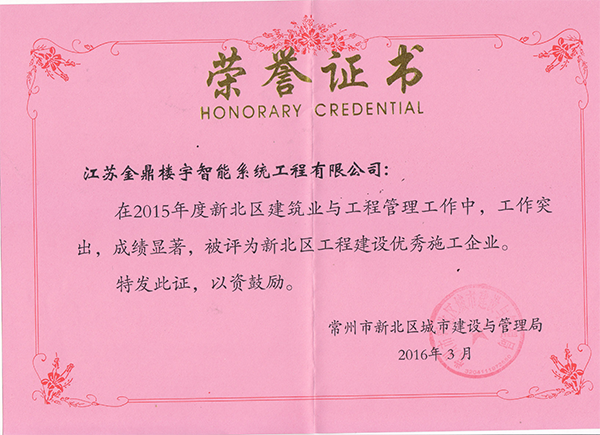 荣誉证书
HONORARY CREDENTIAL
江苏金鼎楼宇智能系统工程有限公司：
在2015年度新北区建筑业与工程管理工作中，工作突
出，成绩显著，被评为新北区工程建设优秀施工企业。
特发此证，以资鼓励。
常州市新北区城市建设与管理局
2016年3月